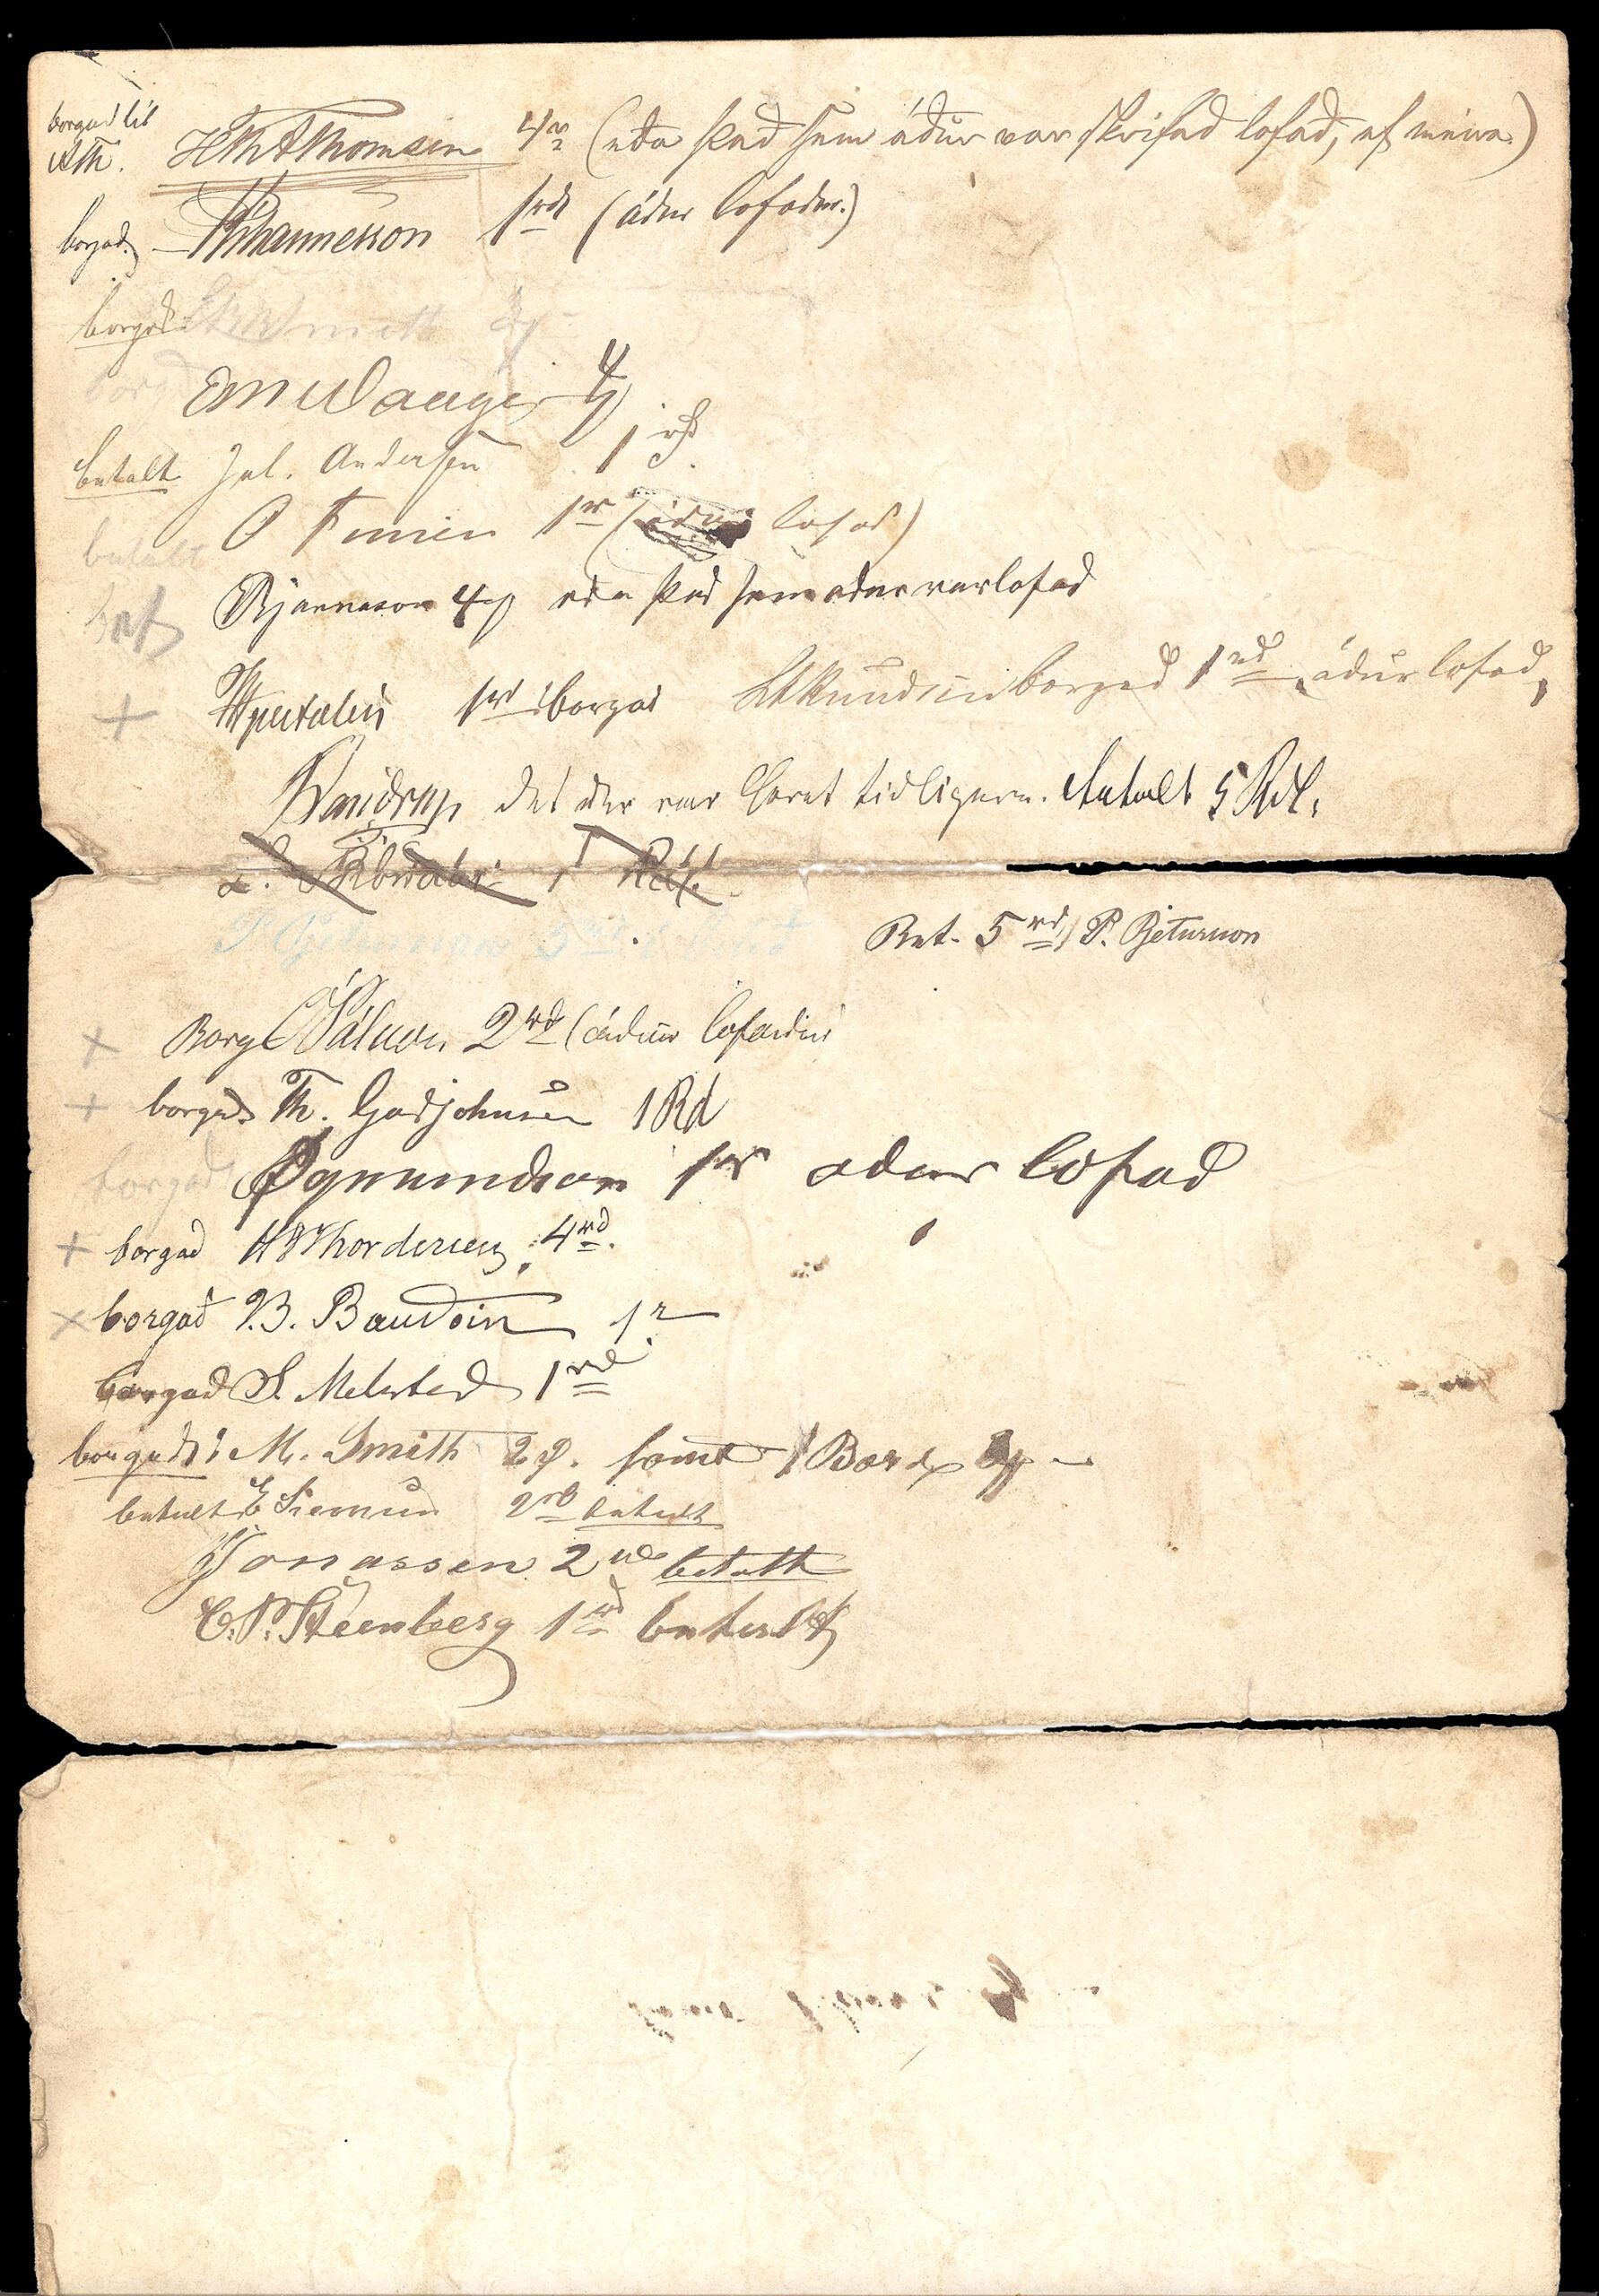 borgad til
ATh. HThAThomsen 4r (eda það sem ádur var skrifad lofad, ef meira)
borgad Jóhannesson 1rd (ádur lofadur.)
borgad Smith 4
borgad EMWaage 4
betalt Jul. Andersen 1 rd.
betalt O Finsen 1r (ádur lofad)
bet Bjarnason 4 eda það sem adur var lofad
+ Hjaltalin 1rd borgad HKGudmundsen borgad 1rd ádur lofad,
Randrup det der var lovet tidligere. betalt 5 Rd.
1 Rd.
P Pjetursson 5rd Bet. 5rd, P. Pjetursson
+ Borg OPálsson 2rd (ádur lofadir
+ borgad Th. Godjohnsen 1Rd
borgad Øgmundson 1r adur lofad
+ borgad HSThordersen, 4rd.
+ borgað J.B. Baudoin 1r
borgad S. Melsted 1rd
borgad M. Smith 2 samt 1
betalt E Siemsen 2rd betalt
Jonassen 2rd betalt
C.P. Steenberg 1rd betalt